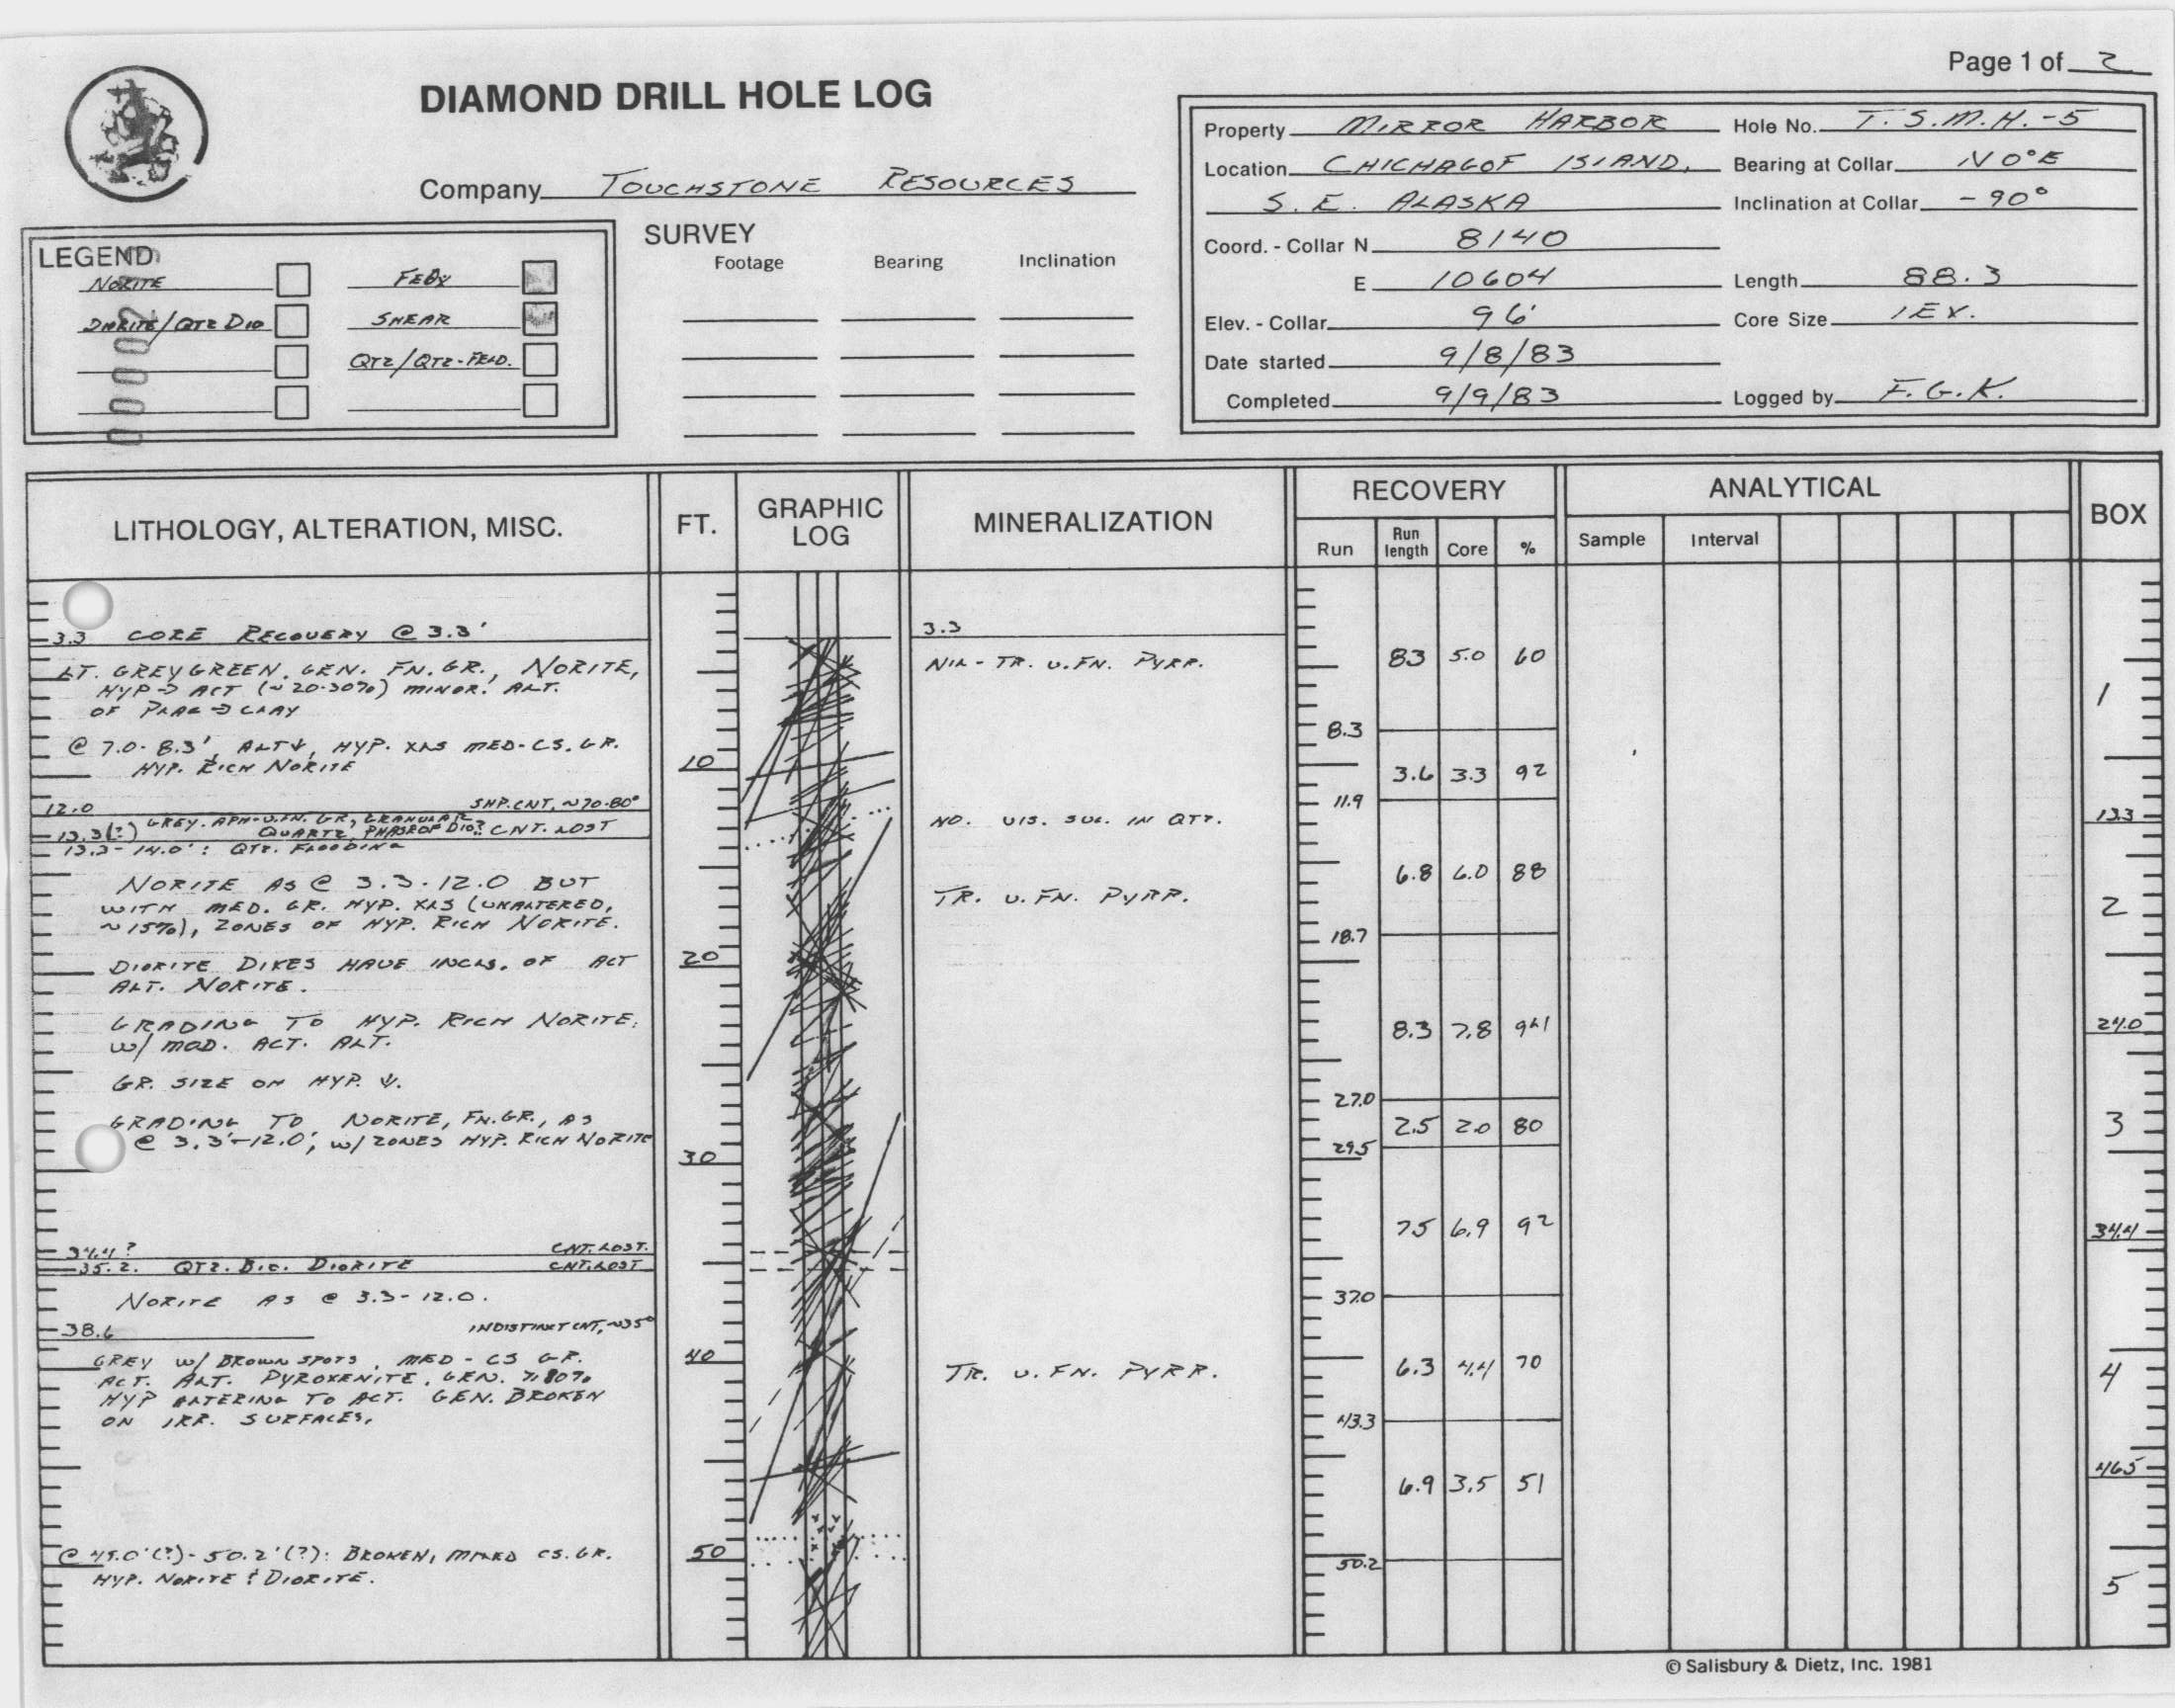 Page 1 of 2
DIAMOND DRILL HOLE LOG
Company TOUCHSTONE RESOURCES
Property MIRROR HARBOR
Hole No. T.S.M.H.-5
Location CHICHAGOF ISLAND,
Bearing at Collar N0°E
S.E. ALASKA
Inclination at Collar -90°
Coord. - Collar N 8140
E 10604
Length 88.3
Elev. - Collar 96'
Core Size IEX.
Date started 9/8/83
Completed 9/9/83
Logged by F.G.K.
LEGEND
NORITE
DIORITE/QTZ DIO
FEOX
SHEAR
QTZ/QTZ-FELD.
SURVEY
Footage Bearing Inclination
LITHOLOGY, ALTERATION, MISC.
FT.
GRAPHIC LOG
MINERALIZATION
RECOVERY
Run Run length Core %
ANALYTICAL
Sample Interval
BOX
3.3 CORE RECOVERY @ 3.3'
LT. GREYGREEN. GEN. FN. GR., NORITE,
HYP→ACT (~20-30%) MINOR. ALT.
OF PLAG→CLAY
@ 7.0-8.3', ALT↓, HYP. XLS MED-CS. GR.
HYP. RICH NORITE
12.0 SHP. CNT, ~70-80°
13.3(?) GREY. APH-V.FN. GR, GRANULAR
QUARTZ, PHASE OF DIO? CNT. LOST
13.3-14.0': QTZ. FLOODING
NORITE AS @ 3.3-12.0 BUT
WITH MED. GR. HYP. XLS (UNALTERED,
~15%), ZONES OF HYP. RICH NORITE.
DIORITE DIKES HAVE INCLS. OF ACT
ALT. NORITE.
GRADING TO HYP. RICH NORITE,
W/ MOD. ACT. ALT.
GR. SIZE ON HYP. ↓.
GRADING TO NORITE, FN. GR., AS
@ 3.3'-12.0', W/ ZONES HYP. RICH NORITE
34.4? CNT. LOST.
35.2. QTZ. BIO. DIORITE CNT. LOST
NORITE AS @ 3.3-12.0.
38.6 INDISTINCT CNT, ~35°
GREY W/ BROWN SPOTS, MED-CS GR.
ACT. ALT. PYROXENITE, GEN. 780%
HYP ALTERING TO ACT. GEN. BROKEN
ON IRR. SURFACES.
@ 49.0'(?)-50.2'(?): BROKEN, MIXED CS. GR.
HYP. NORITE & DIORITE.
10
20
30
40
50
3.3
NIL-TR. V.FN. PYRR.
NO. VIS. SUL. IN QTZ.
TR. V.FN. PYRR.
TR. V.FN. PYRR.
8.3 5.0 60
8.3
3.6 3.3 92
11.9
6.8 6.0 88
18.7
8.3 7.8 94
27.0
2.5 2.0 80
29.5
7.5 6.9 92
37.0
6.3 4.4 70
43.3
6.9 3.5 51
50.2
1
13.3
2
24.0
3
34.4
4
46.5
5
© Salisbury & Dietz, Inc. 1981